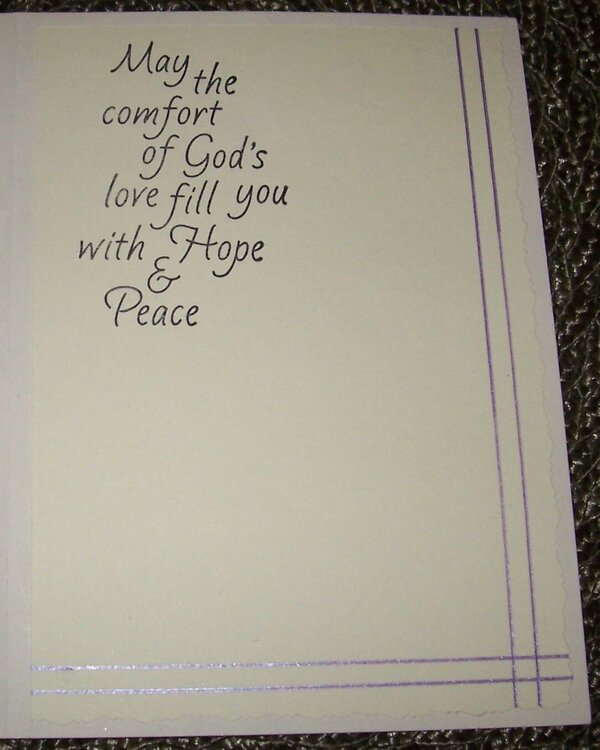 May the
comfort
of God's
love fill you
with Hope
&
Peace